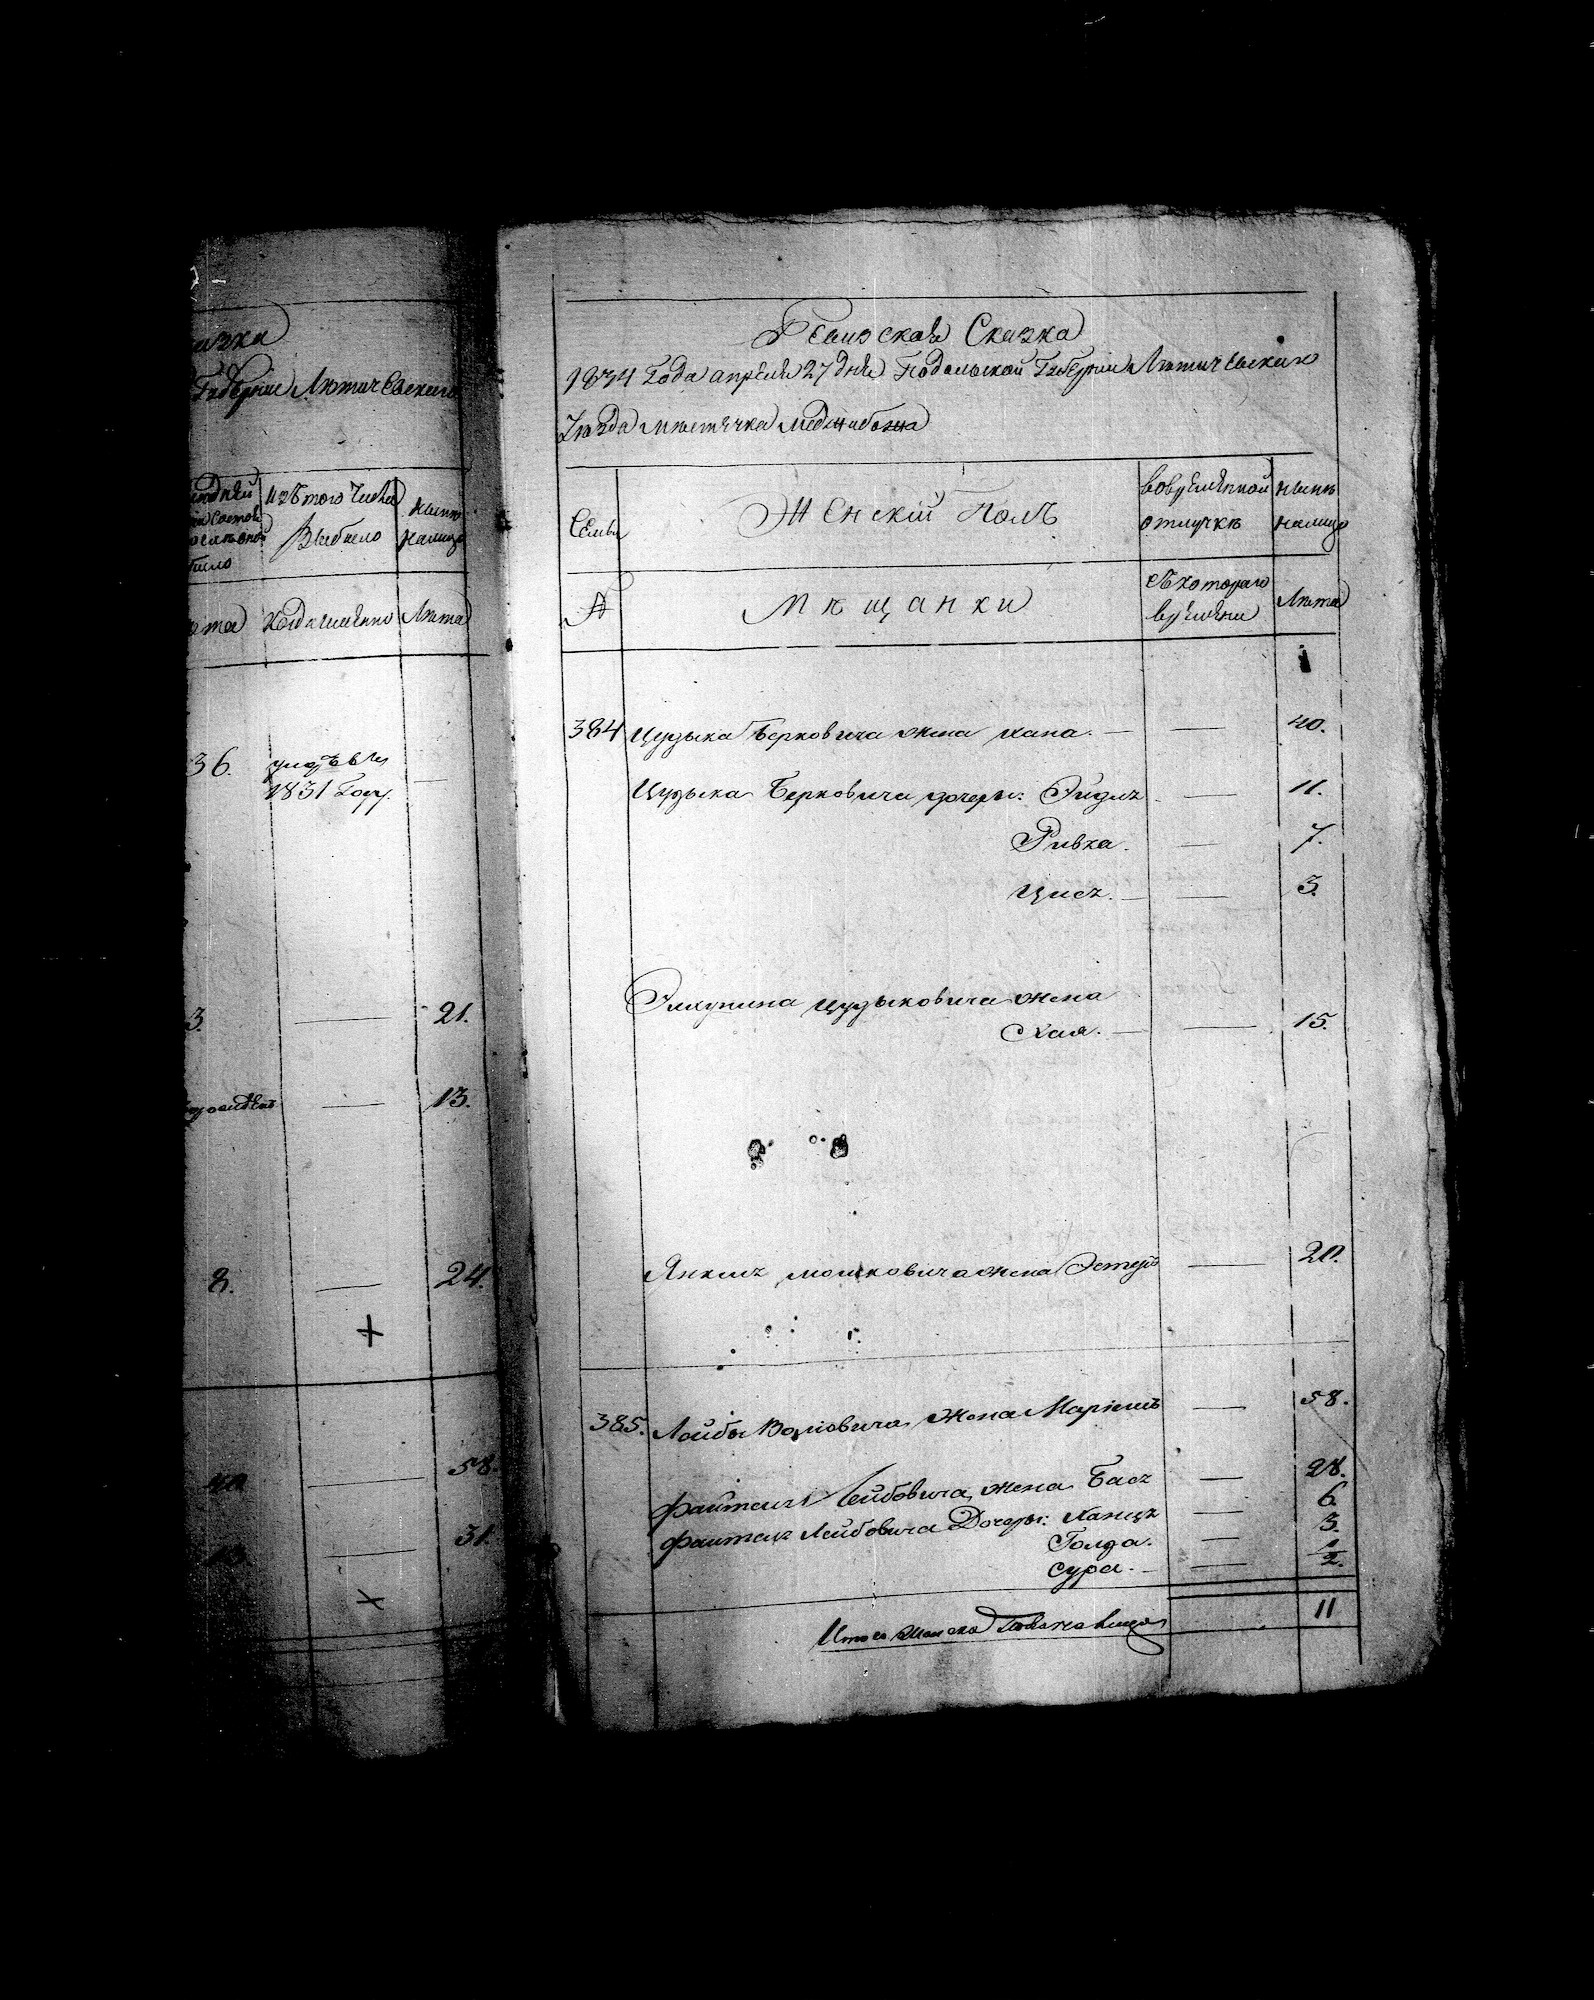 азка
Губерніи Лѣтичевскаго
изъ того числа
нынѣ
Выбыло
налицо
было
Когда имянно
Лѣта
36.
1831 Году.
3.
21.
13.
8.
24.
58.
31.
Ревизская Сказка
1834 Года апреля 27 дня Подольской Губерніи Лѣтичевскаго
Уѣзда мѣстечка Меджибожа
Семьи
Женскій Полъ
вовремянной
отлучкѣ
нынѣ
налицо
№
Мѣщанки
съкотораго
времяни
Лѣта
384
Цудыка Берковича жена хана. — — 40.
Цудыка Берковича дочери: Эйдля — 11.
Ривка. — 7.
Цися. — — 3.
Цудыковича жена
Хая. — — 15.
Янкиля мошковича жена Эстеръ — 20.
385. Лейбы жена Маріемъ — 58.
Файтеля Лейбовича жена Бася — 28.
Файтеля Лейбовича Дочери: Ханця — 6.
Голда. — 3.
Сура. — — 1/2.
Итого женска налицо 11